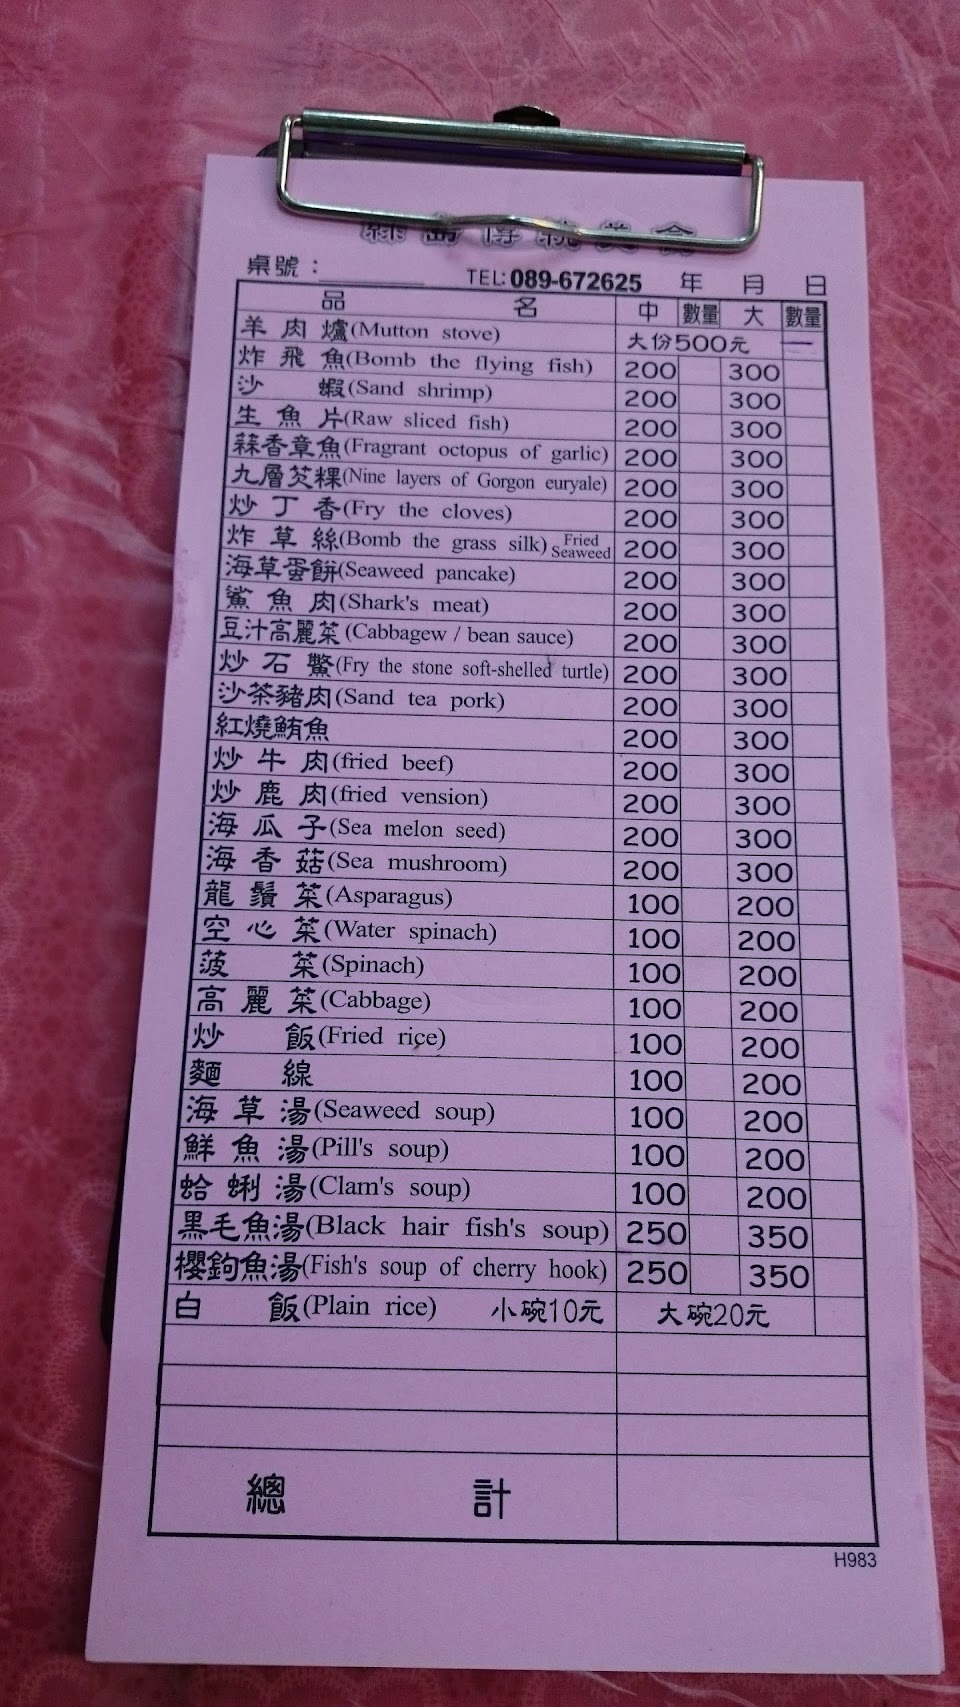 綠島傳統美食
桌號： TEL: 089-672625 年 月 日
品 名 中 數量 大 數量
羊肉爐(Mutton stove) 大份500元
炸飛魚(Bomb the flying fish) 200 300
沙 蝦(Sand shrimp) 200 300
生魚片(Raw sliced fish) 200 300
蒜香章魚(Fragrant octopus of garlic) 200 300
九層芡粿(Nine layers of Gorgon euryale) 200 300
炒丁香(Fry the cloves) 200 300
炸草絲(Bomb the grass silk) Fried Seaweed 200 300
海草蛋餅(Seaweed pancake) 200 300
鯊魚肉(Shark's meat) 200 300
豆汁高麗菜(Cabbagew / bean sauce) 200 300
炒石鱉(Fry the stone soft-shelled turtle) 200 300
沙茶豬肉(Sand tea pork) 200 300
紅燒鮪魚 200 300
炒牛肉(fried beef) 200 300
炒鹿肉(fried vension) 200 300
海瓜子(Sea melon seed) 200 300
海香菇(Sea mushroom) 200 300
龍鬚菜(Asparagus) 100 200
空心菜(Water spinach) 100 200
菠 菜(Spinach) 100 200
高麗菜(Cabbage) 100 200
炒 飯(Fried rice) 100 200
麵 線 100 200
海草湯(Seaweed soup) 100 200
鮮魚湯(Pill's soup) 100 200
蛤蜊湯(Clam's soup) 100 200
黑毛魚湯(Black hair fish's soup) 250 350
櫻鉤魚湯(Fish's soup of cherry hook) 250 350
白 飯(Plain rice) 小碗10元 大碗20元
總 計
H983